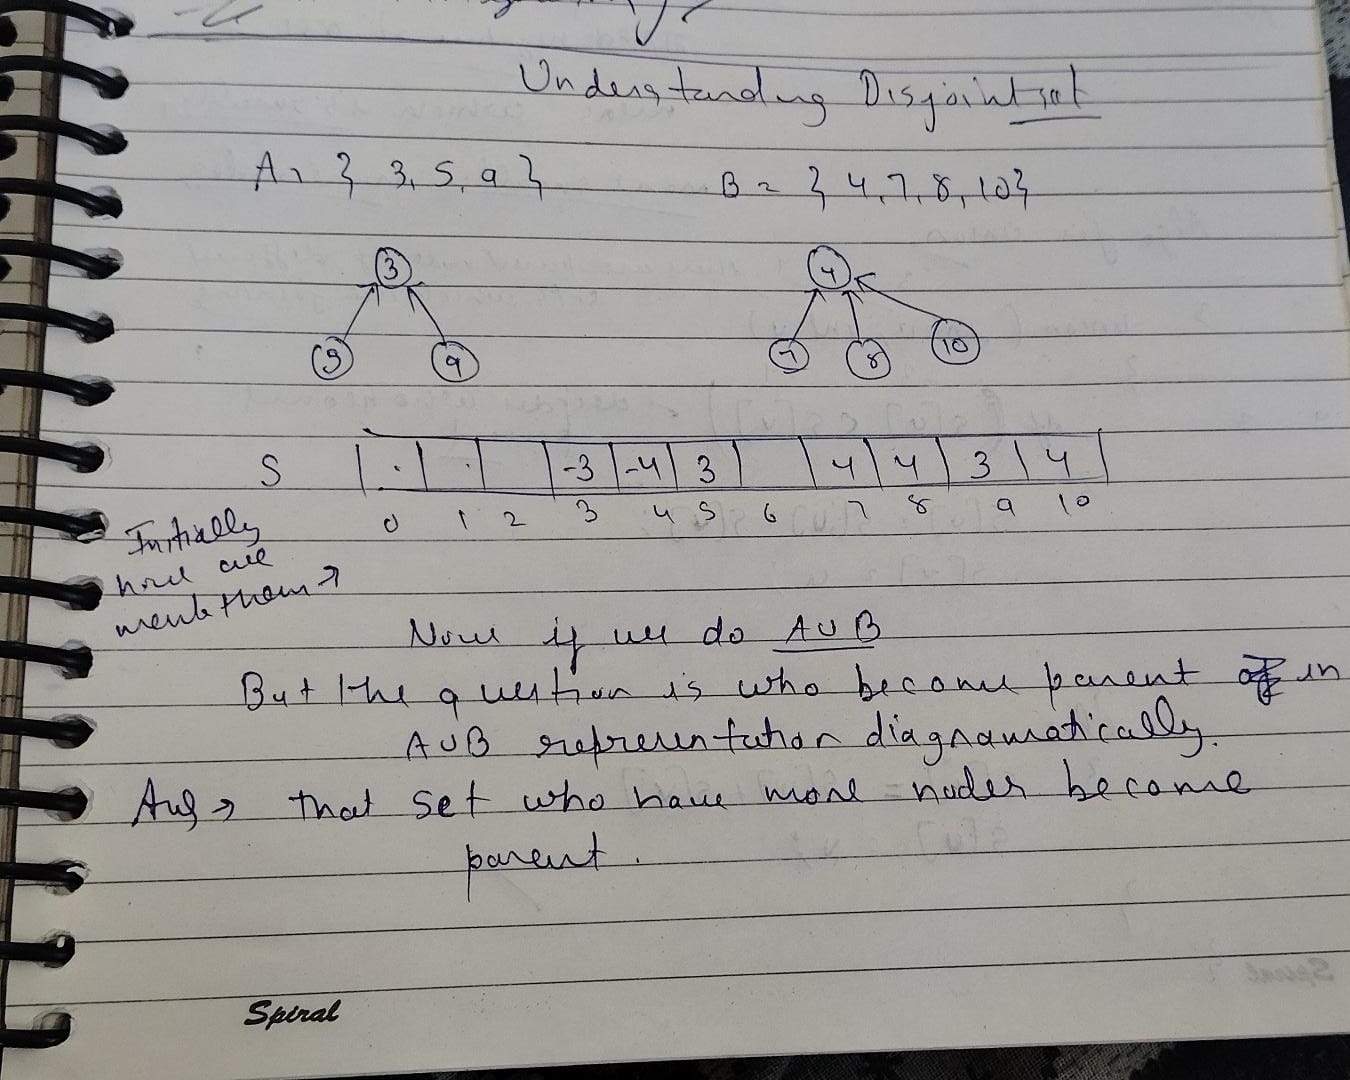 Understanding Disjoint set
A = { 3, 5, 9 } B = { 4, 7, 8, 10 }
3 4
5 9 7 8 10
S . . -3 -4 3 4 4 3 4
0 1 2 3 4 5 6 7 8 9 10
Initially
how we
mark them →
Now if we do A∪B
But the question is who become parent in
A∪B representation diagramatically.
Ans → that set who have more nodes become
parent.
Spiral